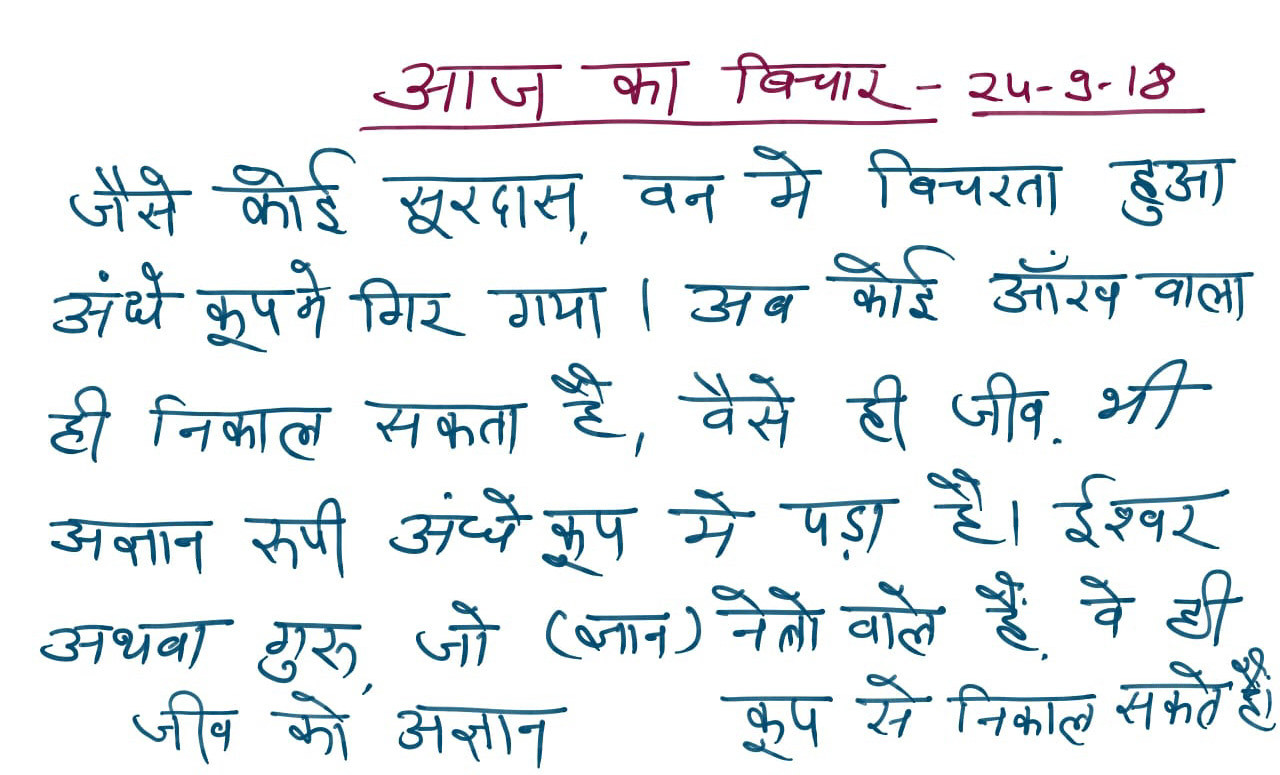 आज का बिचार - २५-९-18
जैसे कोई सूरदास, वन मे बिचरता हुआ
अंधे कूप मे गिर गया । अब कोई आँख वाला
ही निकाल सकता है, वैसे ही जीव. भी
अज्ञान रुपी अंधे कूप मे पड़ा है। ईश्वर
अथवा गुरु, जो (ज्ञान) नेत्रो वाले हैं, वे ही
जीव को अज्ञान कूप से निकाल सकते हैं।